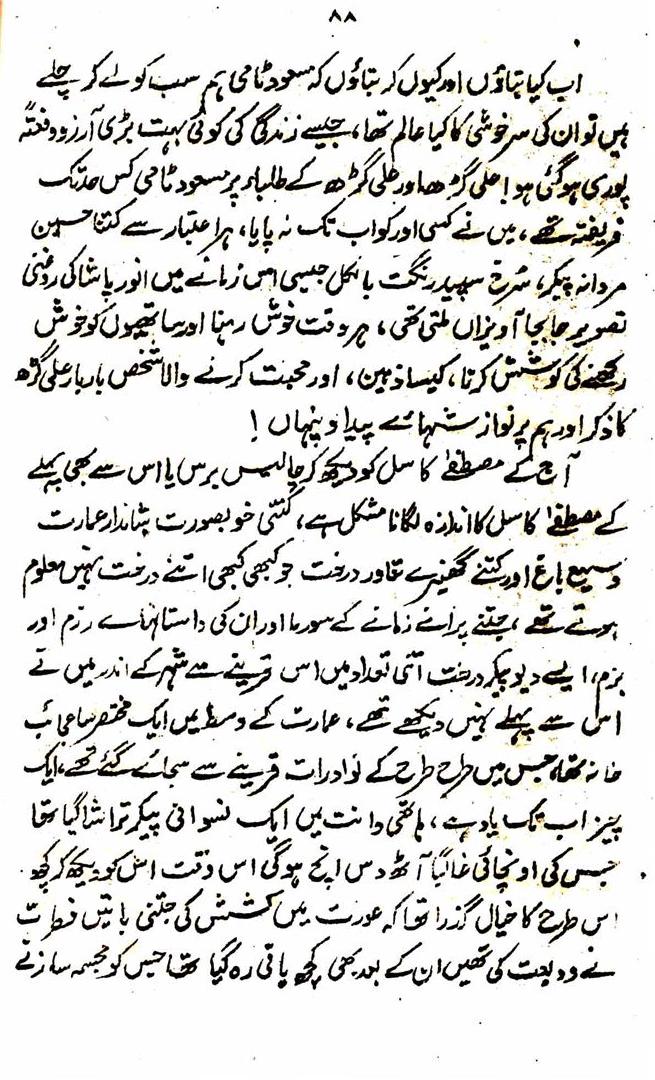 ۸۸
اب کیا بتاؤں اور کیوں کر بتاؤں کہ مسعود ٹامی ہم سب کو لے کر چلے
ہیں تو ان کی سرخوشی کا کیا عالم تھا، جیسے زندگی کی کوئی بہت بڑی آرزو دفعتہً
پوری ہوگئی ہو! علی گڑھ اور علی گڑھ کے طلباء پر مسعود ٹامی کس حد تک
فریفتہ تھے، میں نے کسی اور کو اب تک نہ پایا، ہر اعتبار سے کتنا حسین
مردانہ پیکر، سُرخ سپید رنگت بالکل جیسی اس زمانے میں انور پاشا کی روغنی
تصویر جا بجا آویزاں ملتی تھی، ہر وقت خوش رہنا اور ساتھیوں کو خوش
رکھنے کی کوشش کرنا، کیسا ذہین، اور محبت کرنے والا شخص بار بار علی گڑھ
کا ذکر اور ہم پر نوازشہائے پیدا و پنہاں!
آج کے مصطفےٰ کاسل کو دیکھ کر چالیس برس یا اس سے بھی پہلے
کے مصطفےٰ کاسل کا اندازہ لگانا مشکل ہے، کتنی خوبصورت شاندار عمارت
وسیع باغ اور کتنے گھنیرے تناور درخت جو کبھی کبھی اتنے درخت نہیں معلوم
ہوتے تھے، جتنے پرانے زمانے کے سورما اور ان کی داستانہائے رزم اور
بزم، ایسے دیو پیکر درخت اتنی تعداد میں اس قرینے سے شہر کے اندر میں نے
اس سے پہلے نہیں دیکھے تھے، عمارت کے وسط میں ایک مختصر سا عجائب
خانہ تھا، جس میں طرح طرح کے نوادرات قرینے سے سجائے گئے تھے، ایک
چیز اب تک یاد ہے، ہاتھی دانت میں ایک نسوانی پیکر تراشا گیا تھا
جس کی اونچائی غالباً آٹھ دس انچ ہوگی اس وقت اس کو دیکھ کر کچھ
اس طرح کا خیال گزرا تھا کہ عورت میں کشش کی جتنی باتیں فطرت
نے ودیعت کی تھیں ان کے بعد بھی کچھ باقی رہ گیا تھا جس کو مجسمہ ساز نے